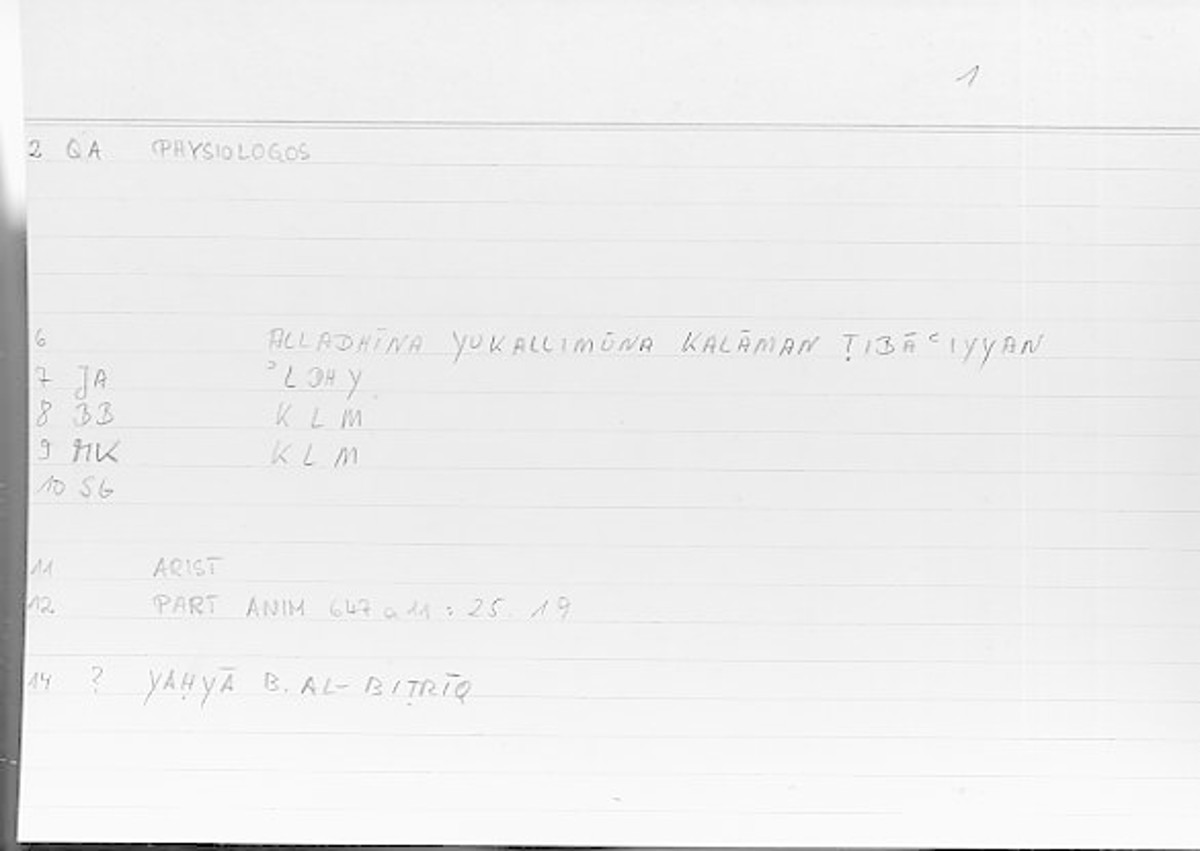 1
2 QA PHYSIOLOGOS
6 ALLADHĪNA YUKALLIMŪNA KALĀMAN ṬIBĀʿIYYAN
7 JA ʾLDHY
8 BB KLM
9 MK KLM
10 SG
11 ARIST
12 PART ANIM 647a11 : 25.19
14 ? YAḤYĀ B. AL-BIṬRĪQ